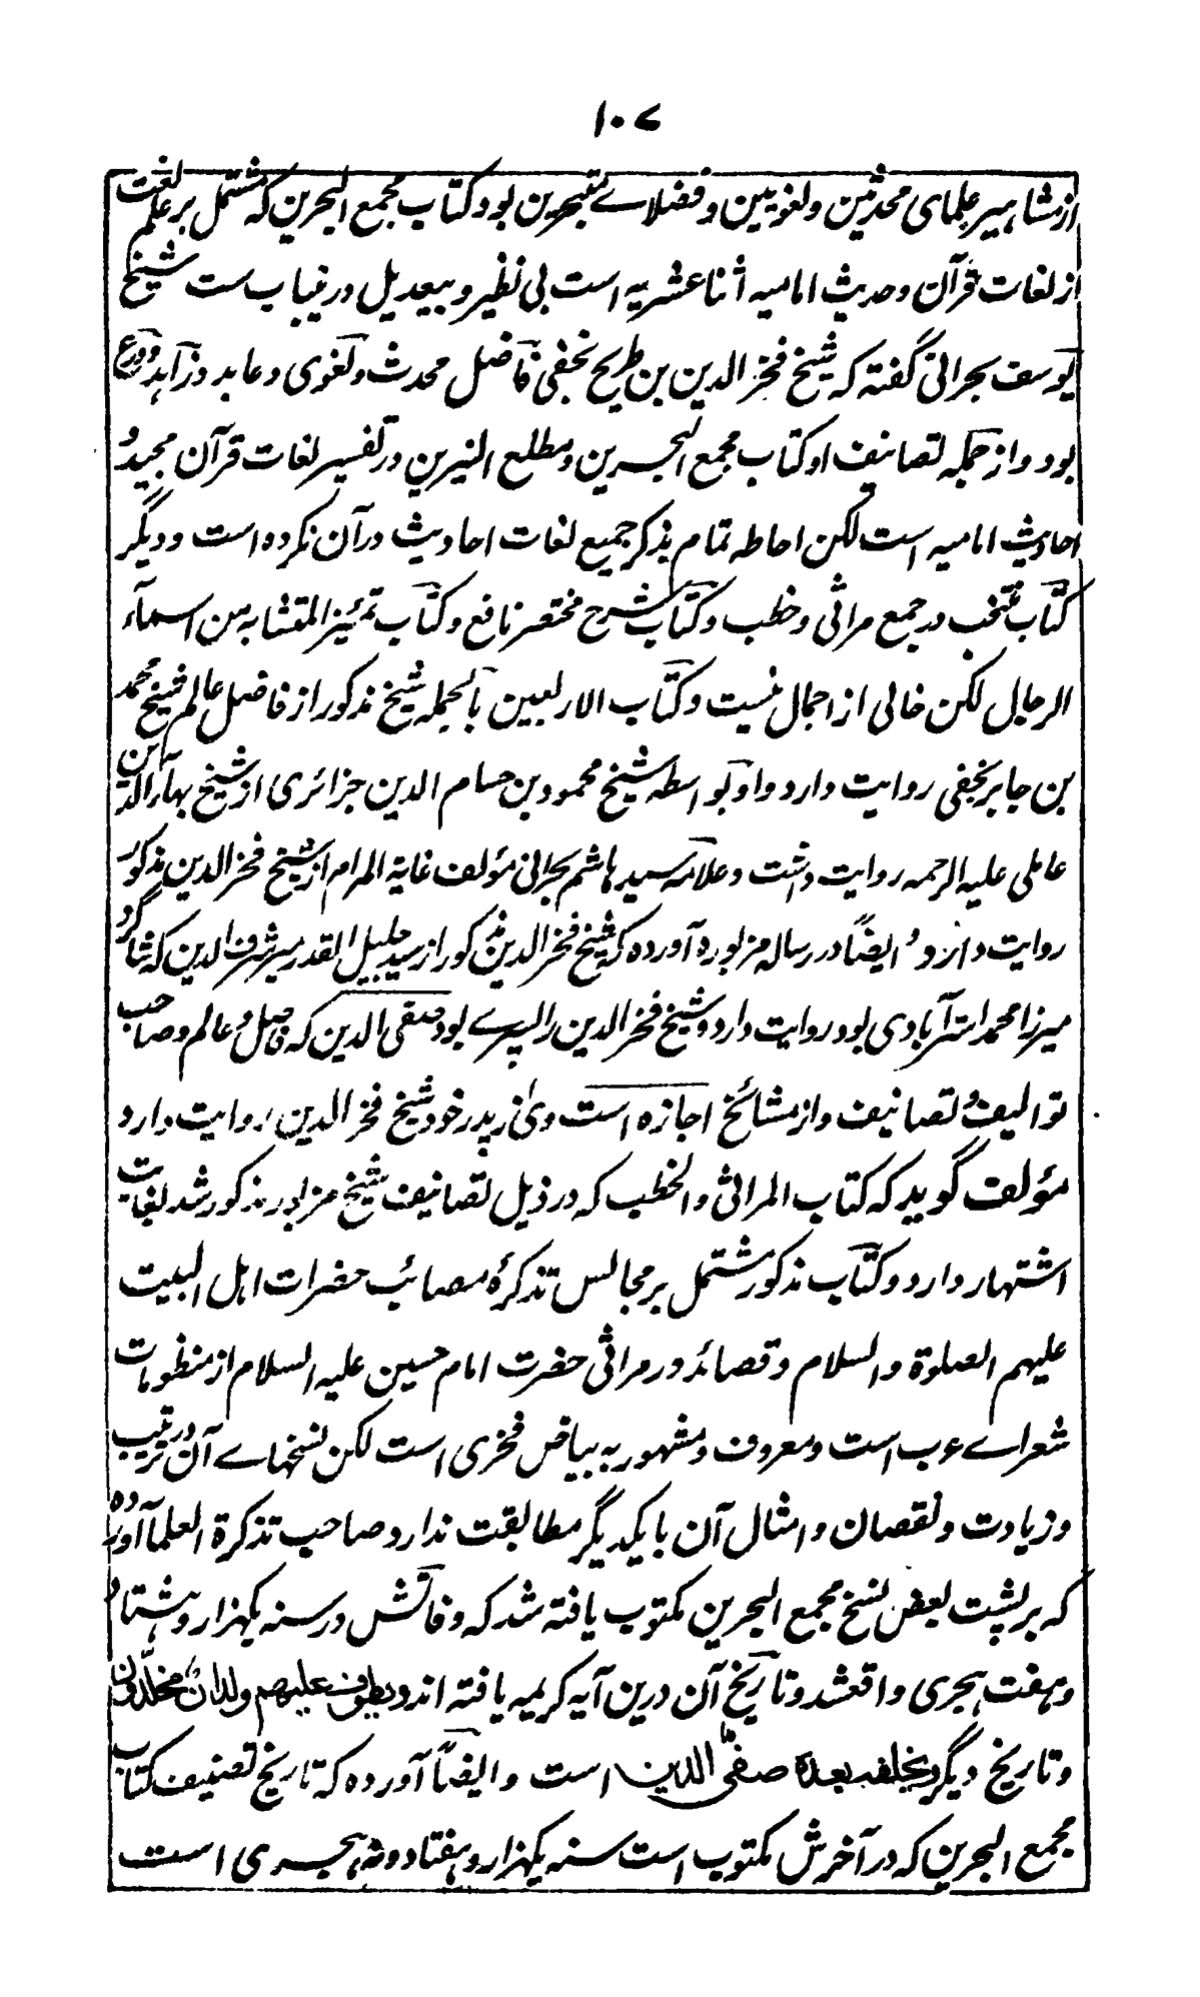 ۱۰۷
از مشاہیر علمای محدثین و لغویین و فضلاے متبحرین بود کتاب مجمع البحرین که مشتمل بر علم لغت
از لغات قرآن و حدیث امامیه اثنا عشریه است بی نظیر و بیعدیل درین باب ست شیخ
یوسف بحرانی گفته که شیخ فخر الدین بن طریح نجفی فاضل محدث و لغوی و عابد و زاہد و ورع
بود و از جمله تصانیف او کتاب مجمع البحرین و مطلع النیرین در تفسیر لغات قرآن مجید و
احادیث امامیه است لکن احاطه تمام بذکر جمیع لغات احادیث در آن نکرده است و دیگر
کتاب منتخب در جمع مراثی و خطب و کتاب شرح مختصر نافع و کتاب تمئیز المتشابه من اسمآء
الرجال لکن خالی از اجمال نیست و کتاب الاربعین بالجمله شیخ مذکور از فاضل عالم شیخ محمد
بن جابر نجفی روایت دارد و او بواسطه شیخ محمود بن حسام الدین جزائری از شیخ بهآء الدین
عاملی علیه الرحمه روایت داشت و علامه سید ہاشم بحرانی مؤلف غایة المرام از شیخ فخر الدین مذکور
روایت دارد و ایضاً در رساله مزبوره آورده که شیخ فخر الدین مذکور از سید جلیل القدر میر شرف الدین که شاگرد
میرزا محمد استرآبادی بود روایت دارد و شیخ فخر الدین را پسرے بود صفی الدین که فاضل و عالم و صاحب
توالیف و تصانیف و از مشائخ اجازه است وی از پدر خود شیخ فخر الدین روایت دارد
مؤلف گوید که کتاب المراثی والخطب که در ذیل تصانیف شیخ مزبور مذکور شد بغایت
اشتہار دارد و کتاب مذکور مشتمل بر مجالس تذکرۂ مصائب حضرات اہل البیت
علیہم الصلوة والسلام و قصائد در مراثی حضرت امام حسین علیه السلام از منظومات
شعراے عرب است و معروف و مشہور به بیاض فخری است لکن نسخہاے آن در ترتیب
و زیادت و نقصان و امثال آن با یکدیگر مطابقت ندارد صاحب تذکرة العلمآ آورده
که بر پشت بعض نسخ مجمع البحرین مکتوب یافته شد که وفاتش در سنه یکہزار و ہشتاد
و ہفت ہجری واقعشد و تاریخ آن درین آیه کریمه یافته اند و یطوف علیهم ولدان مخلدون
و تاریخ دیگر ویخلفه بعدہ صفی الدین است و ایضاً آورده که تاریخ تصنیف کتاب
مجمع البحرین که در آخرش مکتوب است سنه یکہزار و ہفتاد و نہ ہجری است